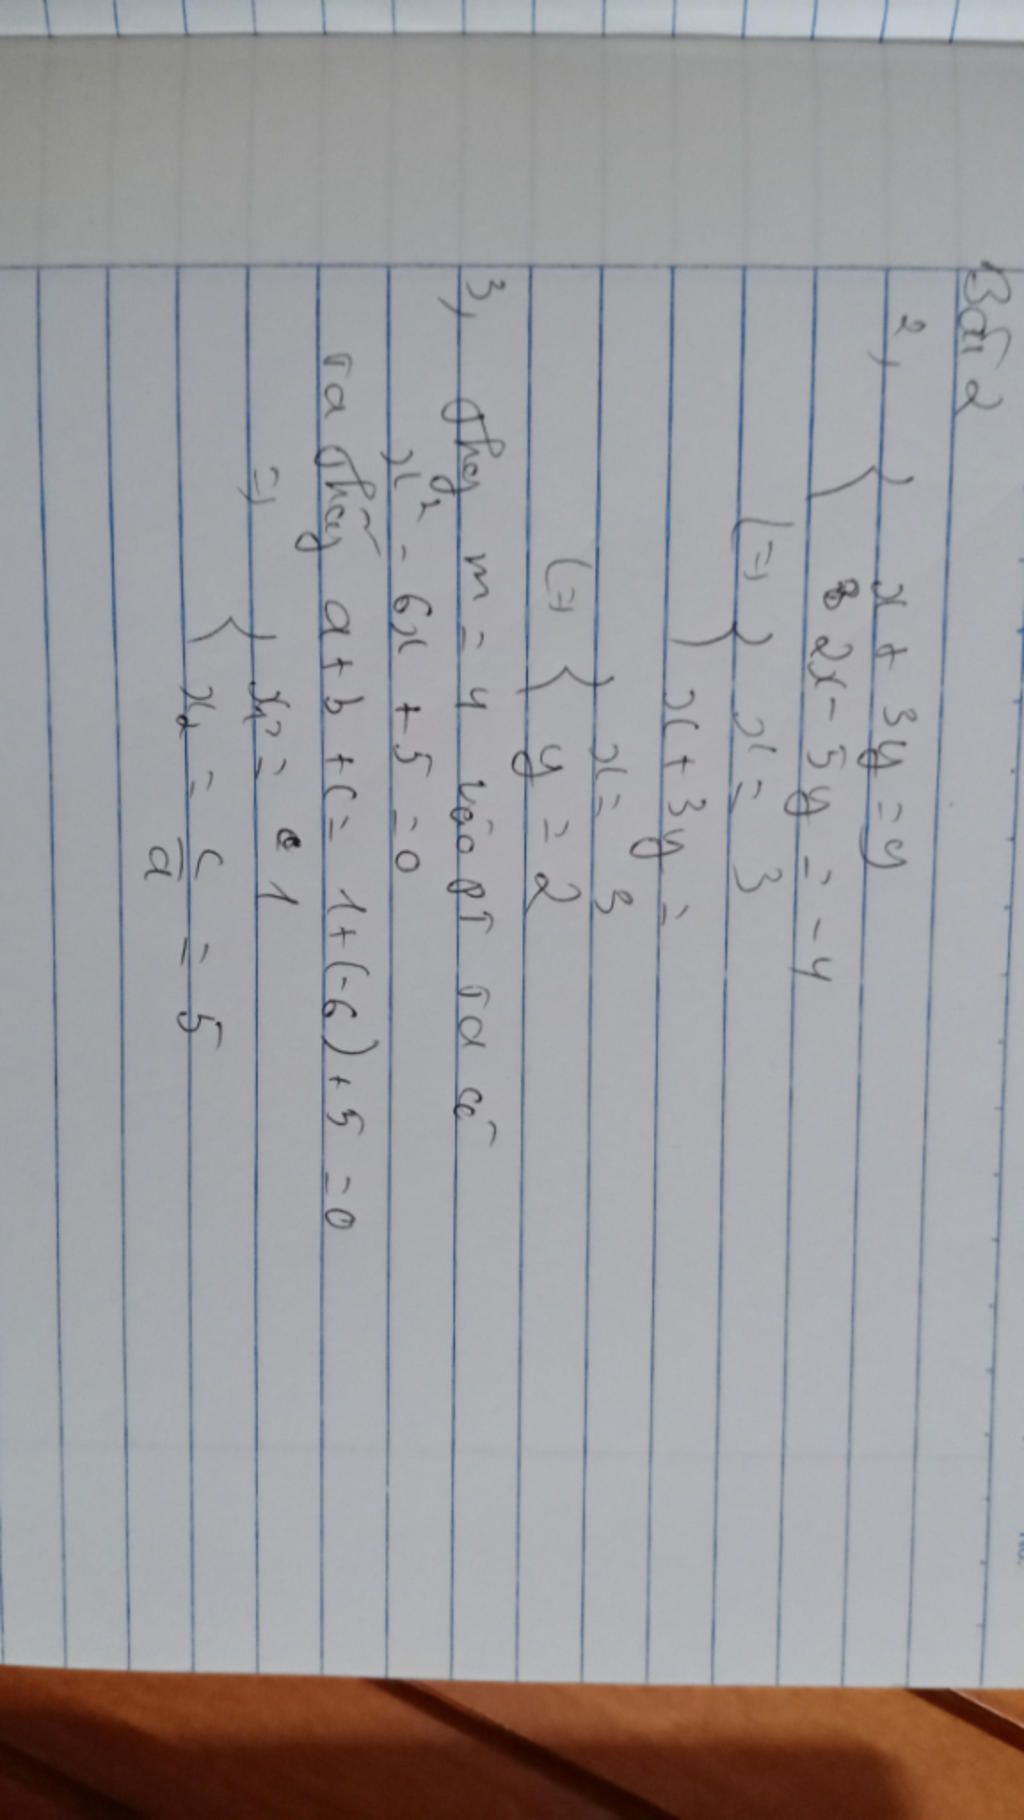 Bài 2
2, { x + 3y = y
2x - 5y = -4
(=) { x = 3
x + 3y =
(=) { x = 3
y = 2
3, Thay m = 4 vào PT ta có
x² - 6x + 5 = 0
Ta thấy a + b + c = 1 + (-6) + 5 = 0
=) { x₁ = 1
x₂ = c/a = 5